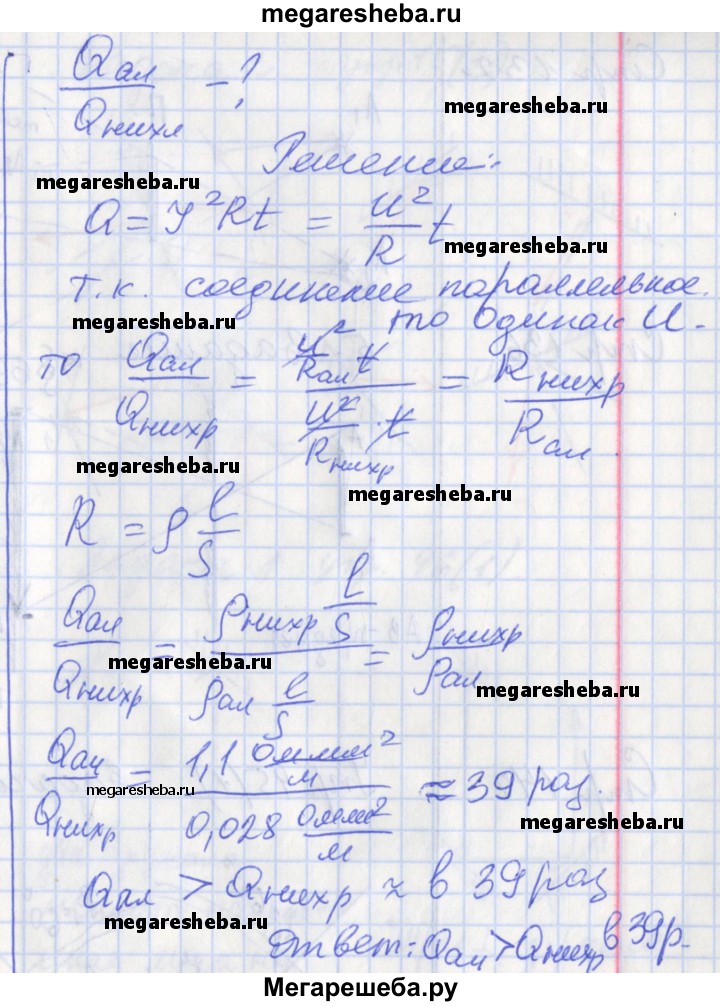 megaresheba.ru
Qал / Qнихл - ?
megaresheba.ru
Решение:
megaresheba.ru
Q = I²Rt = U²/R t
megaresheba.ru
т.к. соединение параллельное.
megaresheba.ru
то одинак U.
то Qал / Qнихр = (U²/Rал t) / (U²/Rнихр · t) = Rнихр / Rал
megaresheba.ru
megaresheba.ru
megaresheba.ru
R = ρ l/S
megaresheba.ru
Qал / Qнихр = (ρнихр l/S) / (ρал l/S) = ρнихр / ρал
megaresheba.ru
megaresheba.ru
Qал / Qнихр = (1,1 Ом мм²/м) / (0,028 Ом мм²/м) ≈ 39 раз.
megaresheba.ru
megaresheba.ru
Qал > Qнихр ≈ в 39 раз
megaresheba.ru
megaresheba.ru
Ответ: Qал > Qнихр в 39 р.
Мегарешеба.ру